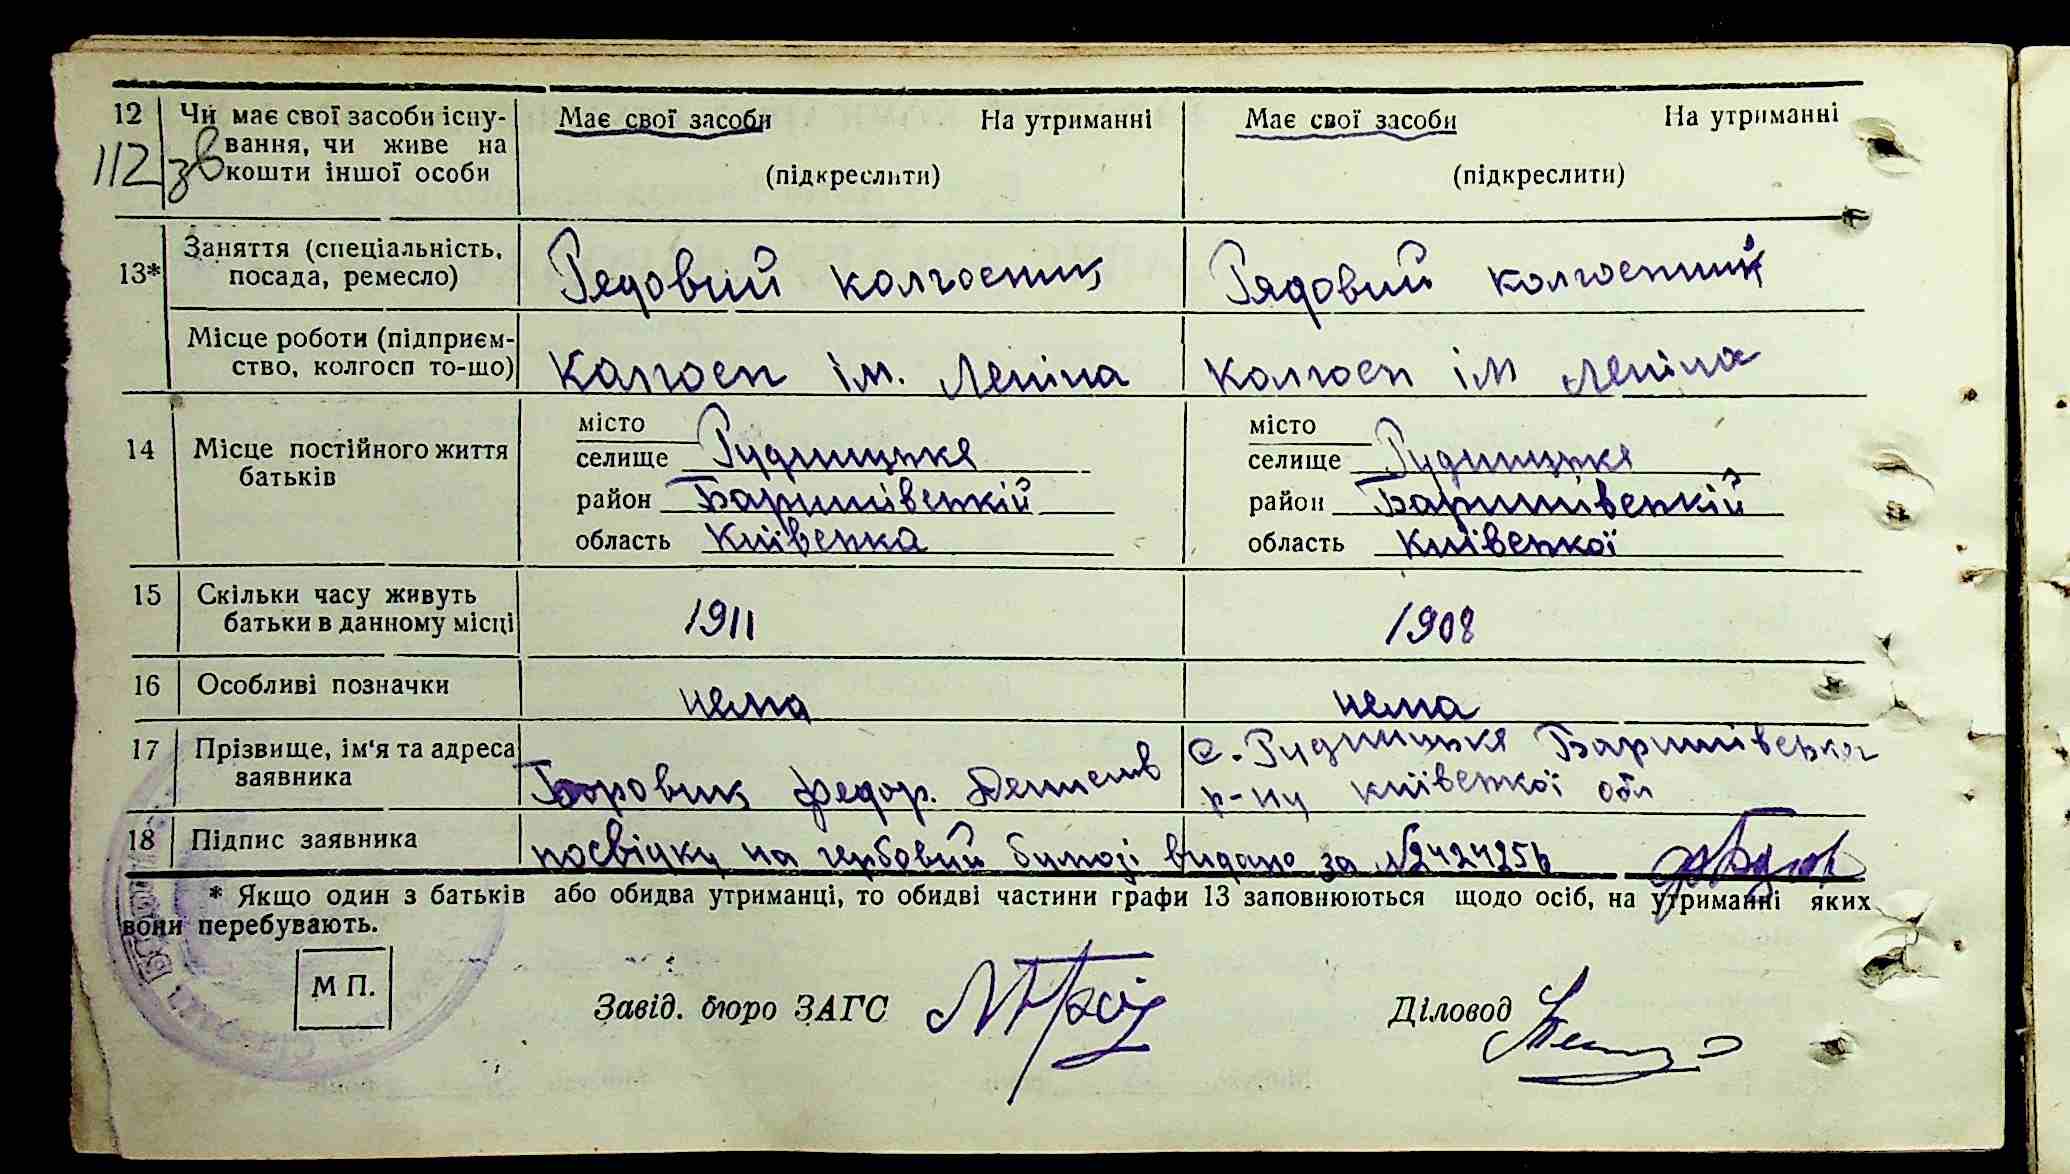 12 Чи має свої засоби існу-
вання, чи живе на
кошти іншої особи
112 зв
Має свої засоби На утриманні
(підкреслити)
Має свої засоби На утриманні
(підкреслити)
13* Заняття (спеціальність,
посада, ремесло)
Рядовий колгоспник
Рядовий колгоспник
Місце роботи (підприєм-
ство, колгосп то-що)
Колгосп ім. Леніна
Колгосп ім Леніна
14 Місце постійного життя
батьків
місто
селище Рудницьке
район Баришівський
область Київська
місто
селище Рудницьке
район Баришівській
область Київської
15 Скільки часу живуть
батьки в данному місці
1911
1908
16 Особливі позначки
нема
нема
17 Прізвище, ім'я та адреса
заявника
Боровик Федор. Денисов
с. Рудницьке Баришівського
р-ну київської обл
18 Підпис заявника
посвідку на гербовий бумозі видано за №
* Якщо один з батьків або обидва утриманці, то обидві частини графи 13 заповнюються щодо осіб, на утриманні яких
вони перебувають.
М П.
Завід. бюро ЗАГС
Діловод